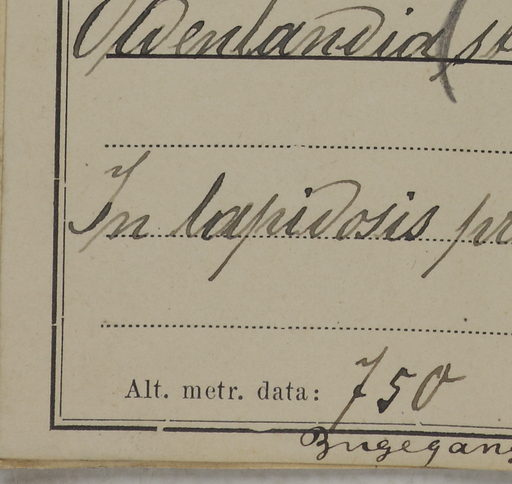 Oldenlandia (st
In lapidosis pr
Alt. metr. data: 750
Zugegang